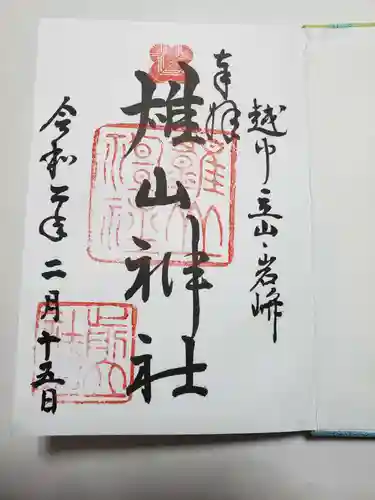 越中立山・岩峅
奉拝
雄山神社
令和二年二月十五日